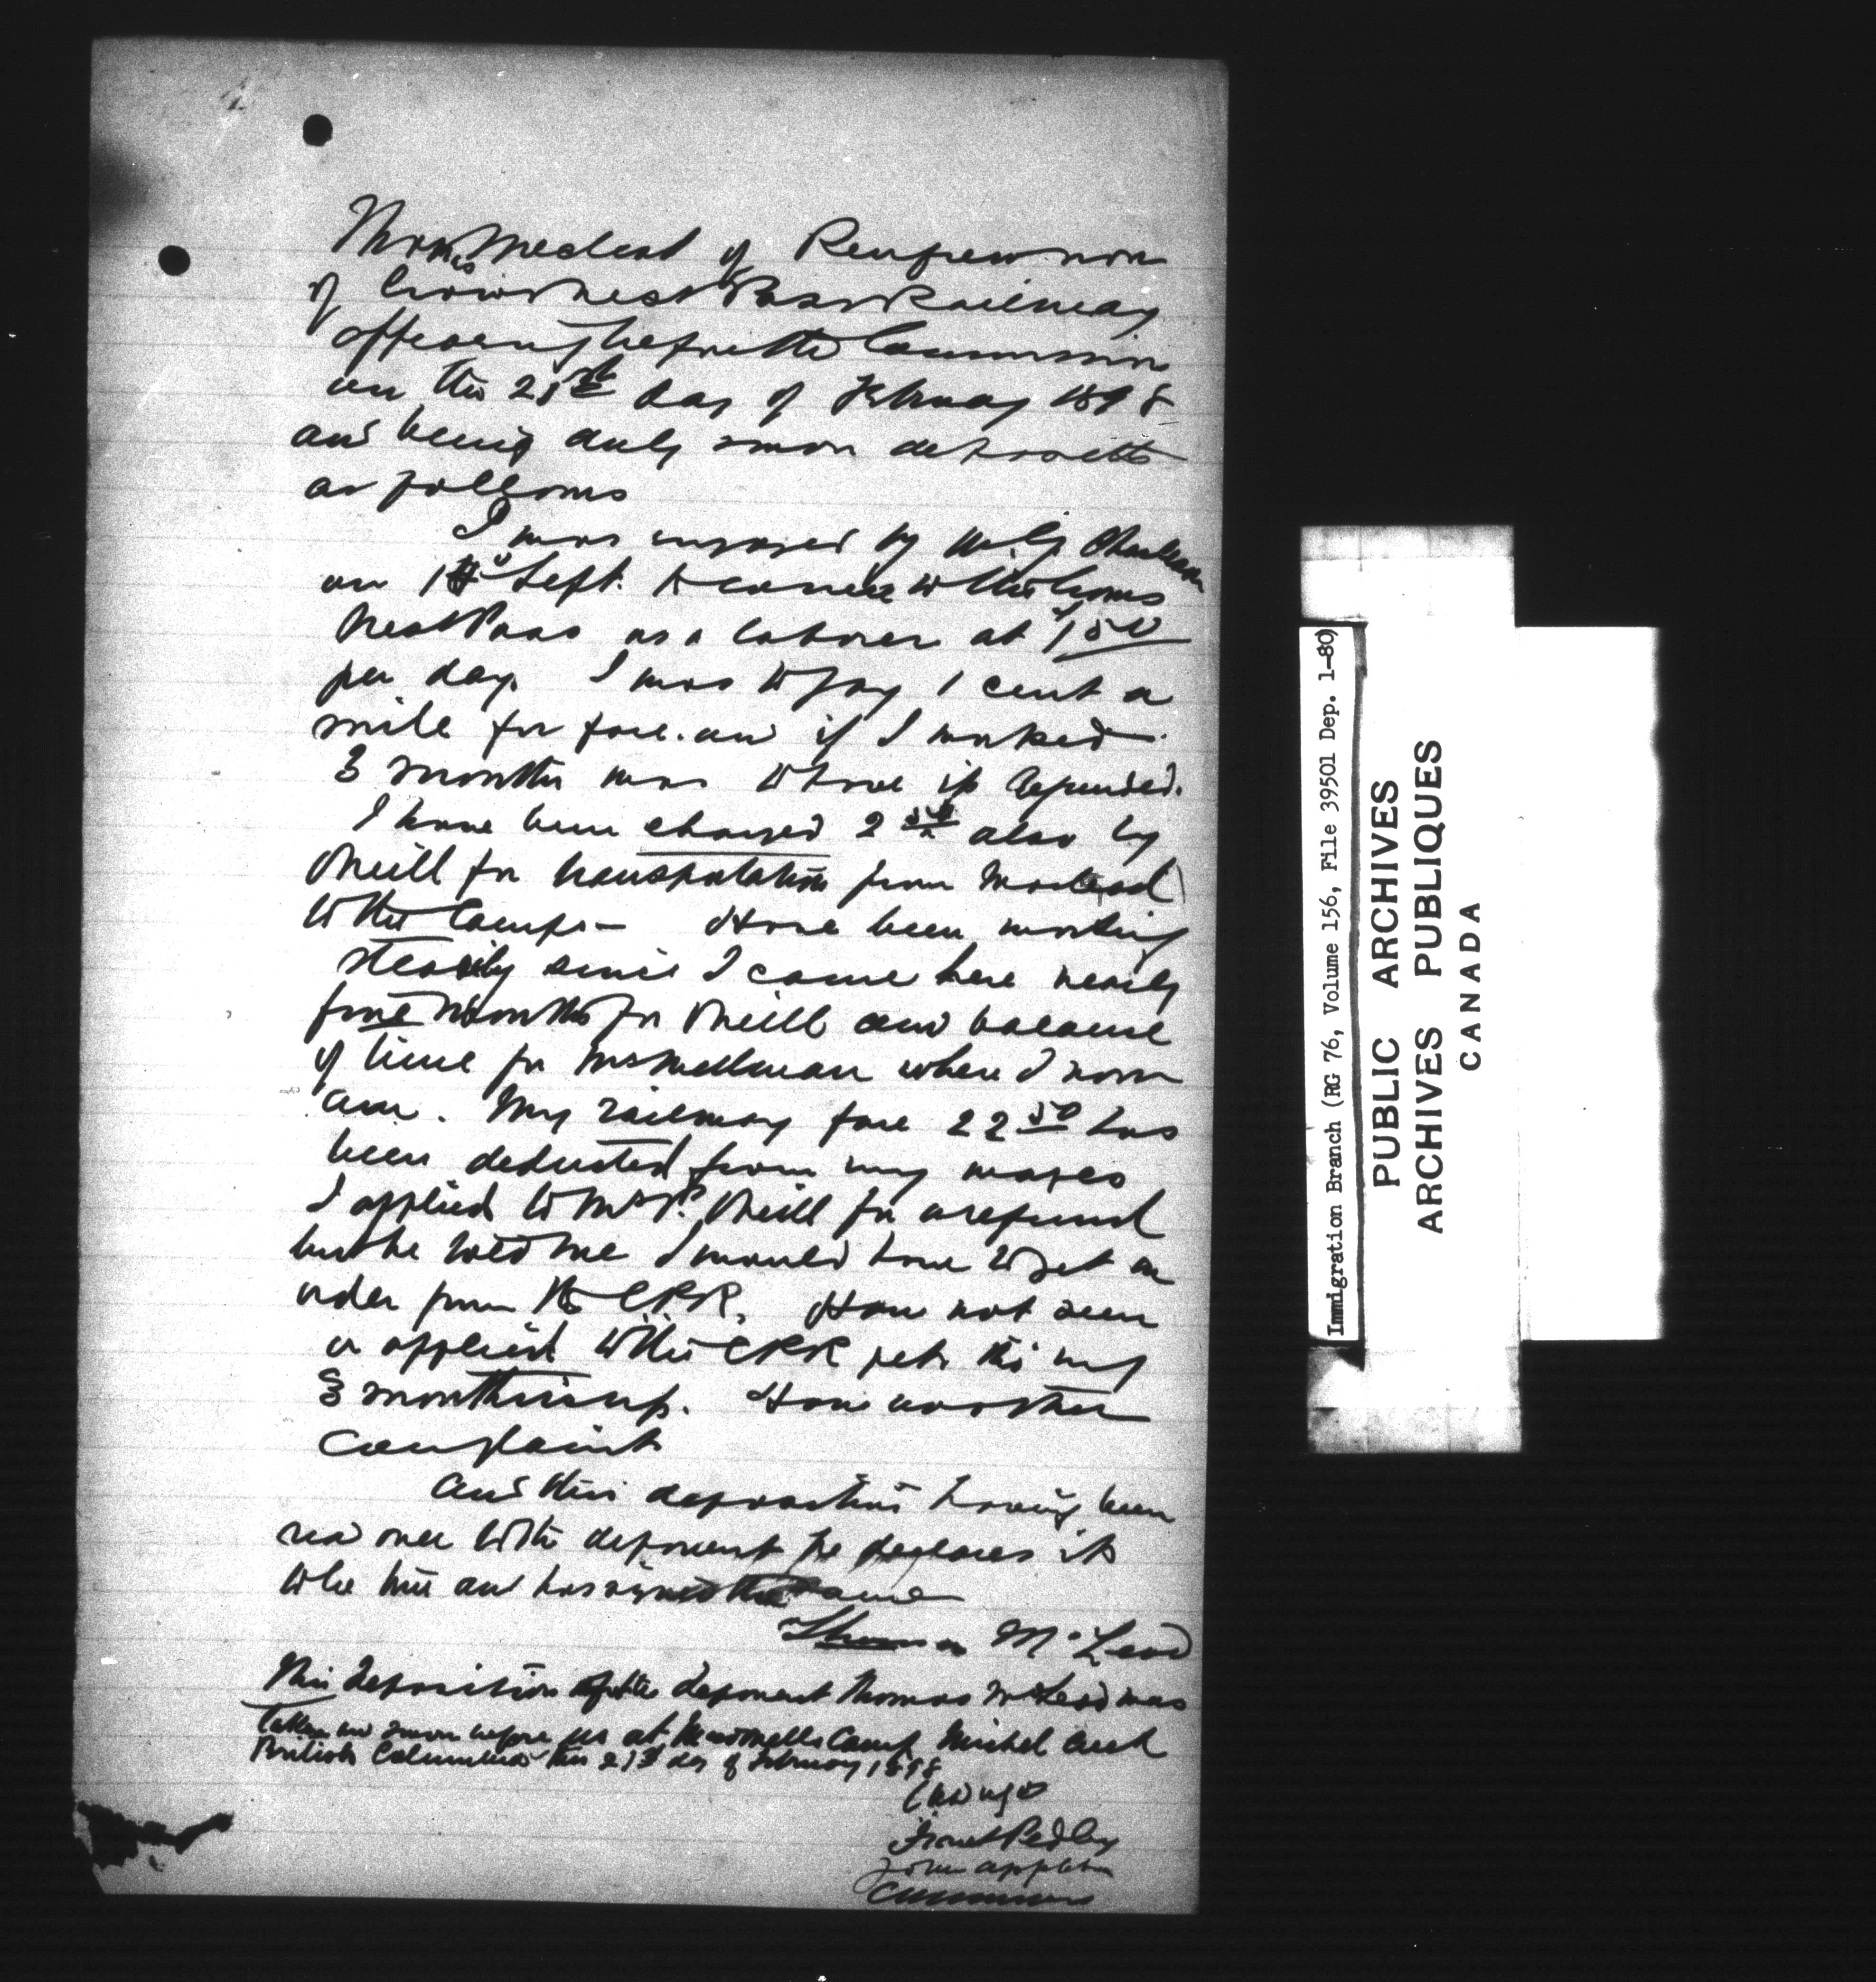 Thomas McLeod of Renfrew now
of Crows Nest Pass Railway
appearing before the Commission
on the 21st day of February 1898
and being duly sworn deposeth
as follows
I was engaged by W.G. Charleson
on Sept. to come to the Crows
Nest Pass as a laborer at $1 50
per day. I was to pay 1 cent a
mile for fare and if I worked
3 months was to have it refunded.
I have been charged 2 50 also by
O'Neill for transportation from Macleod
to the Camp - Have been working
steadily since I came here nearly
four months for O'Neill and balance
of time for where I now
am. My railway fare 22 50 has
been deducted from my wages
I applied to Mr P. O'Neill for a refund
but he told me I would have to get an
order from the C.P.R. Have not seen
or applied to the CPR yet tho my
3 months is up. Have no other
complaint
And this deposition having been
read over to the deponent he declares it
to be true and has signed the same
Thomas McLeod
This deposition of the deponent Thomas McLeod was
taken and sworn before us at Camp Michel Creek
British Columbia this 21st day of February 1898
Frank Pedley
John Appleton
Commissioners
Immigration Branch (RG 76, Volume 156, File 39501 Dep. 1-80)
PUBLIC ARCHIVES
ARCHIVES PUBLIQUES
CANADA